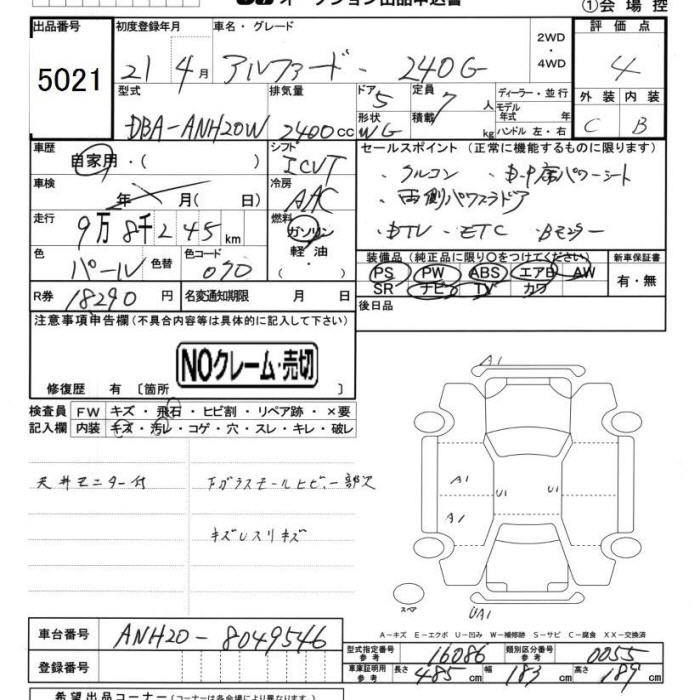 オークション出品申込書
①会場控
出品番号 初度登録年月 車名・グレード 2WD ・ 4WD 評価点
5021 21 4月 アルファード・ 240G 4
型式 排気量 ドア 定員 ディーラー・並行 外装 内装
DBA-ANH20W 2400cc 5 7人 モデル年式 年 C B
形状 積載 ハンドル 左・右
WG kg
車歴 シフト セールスポイント (正常に機能するものに限ります)
自家用・( ) ICVT ・クルコン ・D・中席パワーシート
車検 冷房 ・両側パワスラドア
年 月( 日) AAC
走行 燃料 ・DTV ・ETC ・Bモニター
9万8千245km ガソリン・軽油・( )
色 色替 色コード 装備品 (純正品に限り○をつけてください) 新車保証書
パール 070 PS PW ABS エアB AW 有・無
R券 18290円 名変通知期限 月 日 SR ナビ TV カワ
注意事項申告欄 (不具合内容等は具体的に記入して下さい) 後日品
NOクレーム・売切
修復歴 有 [箇所 ]
検査員 FW キズ・飛石・ヒビ割・リペア跡・×要
記入欄 内装 キズ・汚レ・コゲ・穴・スレ・キレ・破レ
天井モニター付 下ガラスモールヒビ、一部欠
キズレスリキズ
A1
A1
A1
U1
U1
スペア
UA1
A-キズ E-エクボ U-凹み W-補修跡 S-サビ C-腐食 XX-交換済
車台番号 ANH20-8049546
型式指定番号 参考 16086 類別区分番号 参考 0055
登録番号 車庫証明用 参考 長さ 485cm 幅 183cm 高さ 189cm
希望出品コーナー